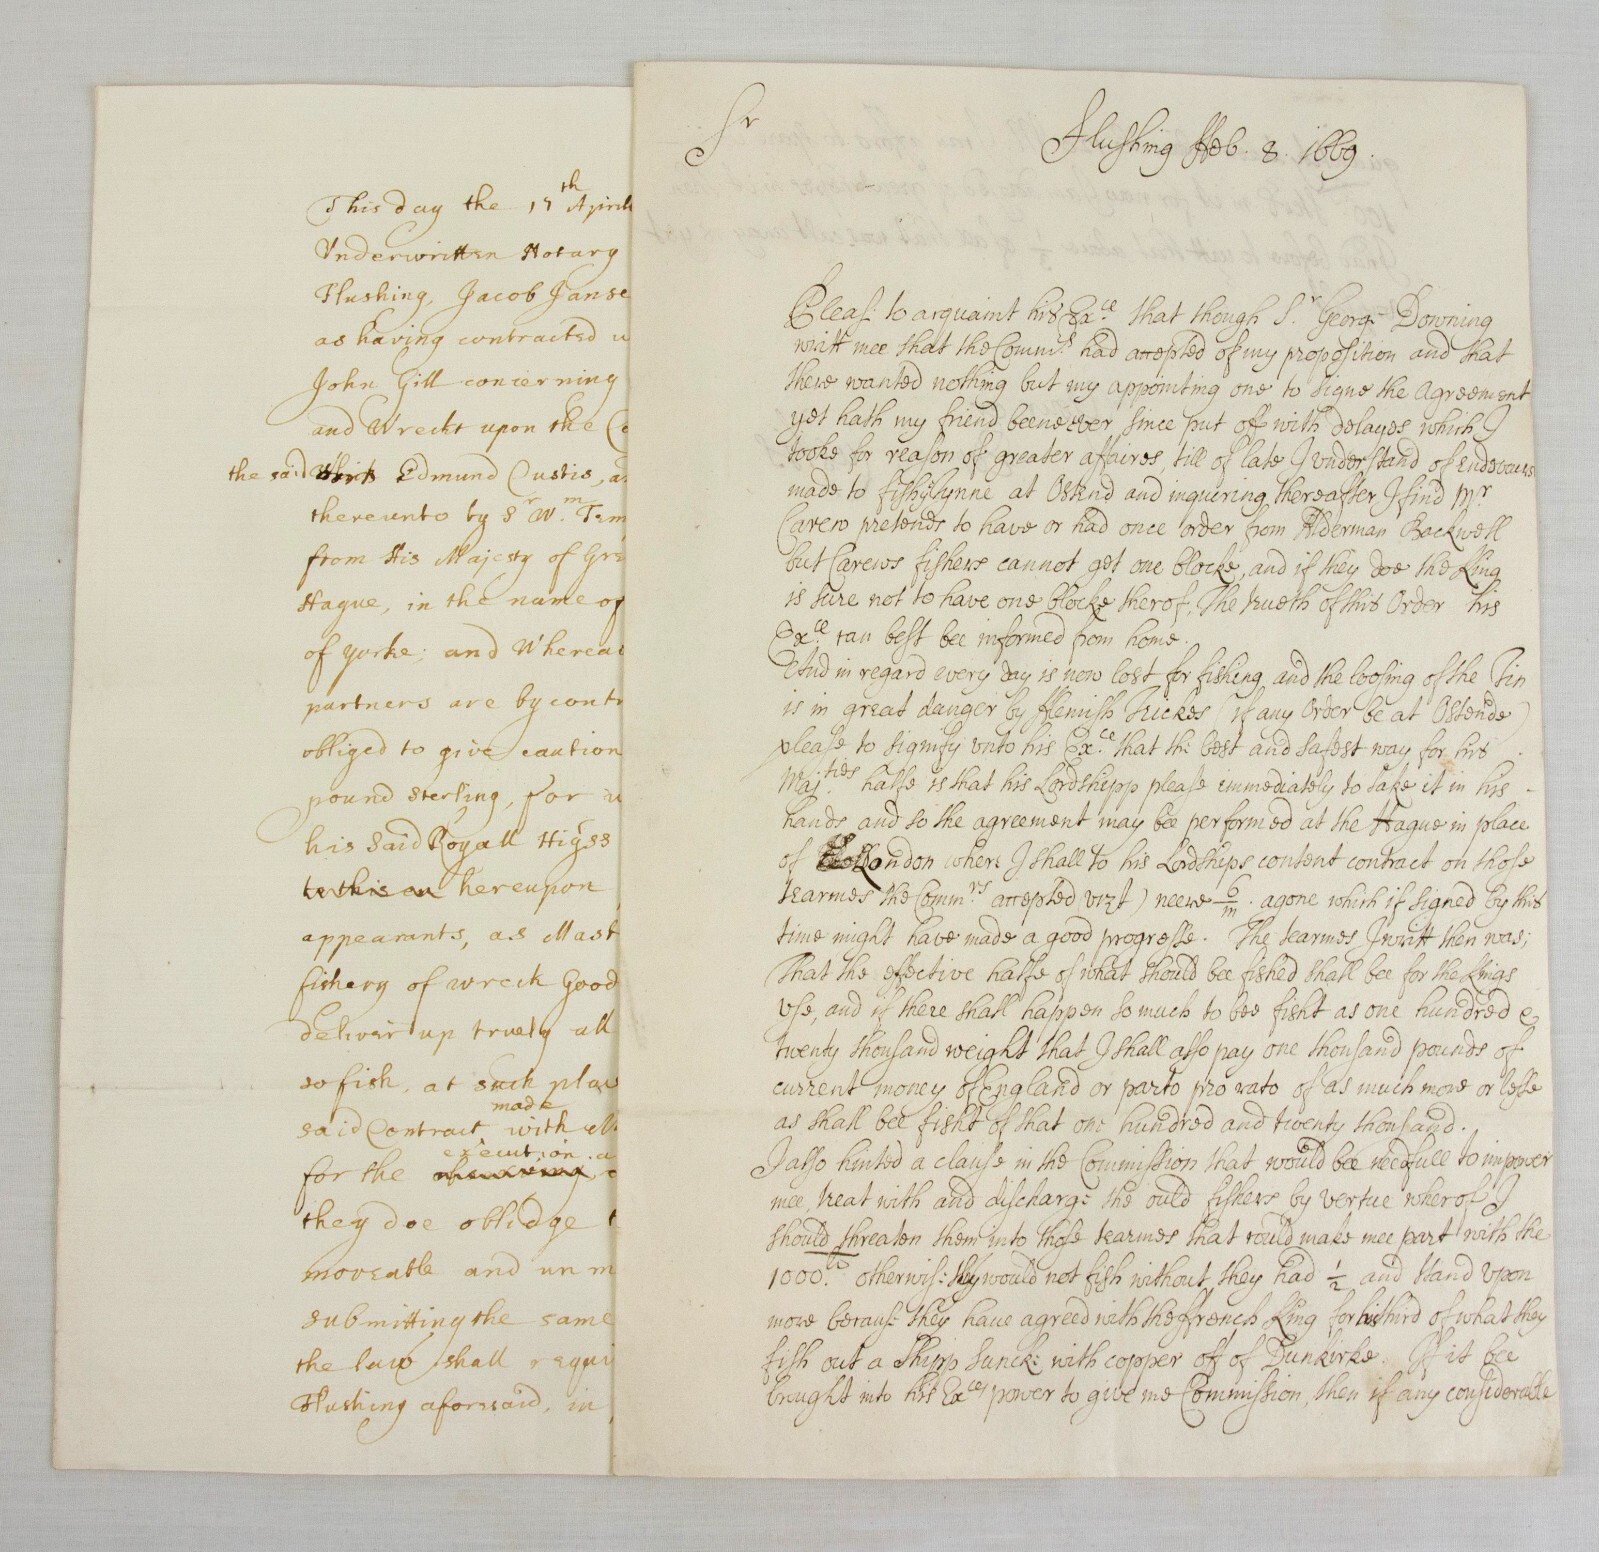 This day the 17th Aprill
Underwritten Notary
Flushing, Jacob Janse
as having contracted
John Gill concerning
and Wreckt upon the
the said Edmund Custis,
thereunto by Sr Wm. Tem
from His Majesty of Gre
Hague, in the name of
of Yorke; and Wherea
partners are by contr
obliged to give caution
pound Sterling, for
his said Royall Higss
to this hereupon
appearants, as Mast
fishery of wreck Good
deliver up truely all
so fish, at such plac
made
said Contract with
execution
for the
they doe oblidge t
moveable and un m
submitting the same
the law shall requi
Flushing aforesaid, in
Sr
Flushing Ffeb. 8. 1669.
Pleas: to acquaint his Exce. that though Sr. Georg Downing
writt mee that the Comms. had accepted of my proposition and that
there wanted nothing but my appointing one to signe the Agreement
yet hath my friend beene ever since put off with delayes which I
tooke for reason of greater affaires, till of late I understand of endevours
made to fish Tynne at Ostend and inquering thereafter I find Mr
Carew pretends to have or had once order from Alderman Backwell
but Carews fishers cannot get one blocke, and if they doe the King
is sure not to have one blocke therof, The trueth of this Order his
Exce. can best bee informed from home.
And in regard every day is now lost for fishing and the loosing of the Tin
is in great danger by fflemish Trickes (if any Order be at Ostende)
please to signify unto his Exce. that the best and safest way for his
Maj.ties halfe is that his Lordshipp please immediately to take it in his -
hands and so the agreement may bee performed at the Hague in place
of London where I shall to his Lordships content contract on those
tearmes the Commrs accepted (vizt) neere 6/m. agone which if signed by this
time might have made a good progresse. The tearmes I writt then was;
That the effective halfe of what should bee fished shall bee for the Kings
use, and if there shall happen so much to bee fisht as one hundred &
twenty thousand weight that I shall also pay one thousand pounds of
current money of England or parto pro rato of as much more or lesse
as shall bee fisht of that one hundred and twenty thousand.
I also hinted a clause in the Commission that would bee needfull to impower
mee, treat with and discharge the ould fishers by vertue wherof I
should threaten them into those tearmes that could make mee part with the
1000.lb otherwis: they would not fish without they had ½ and stand upon
more becaus: they have agreed with the ffrench King for his third of what they
fish out a Shipp sunck: with copper off of Dunkirke. If it bee
brought into his Exces power to give me Commission, then if any considerable